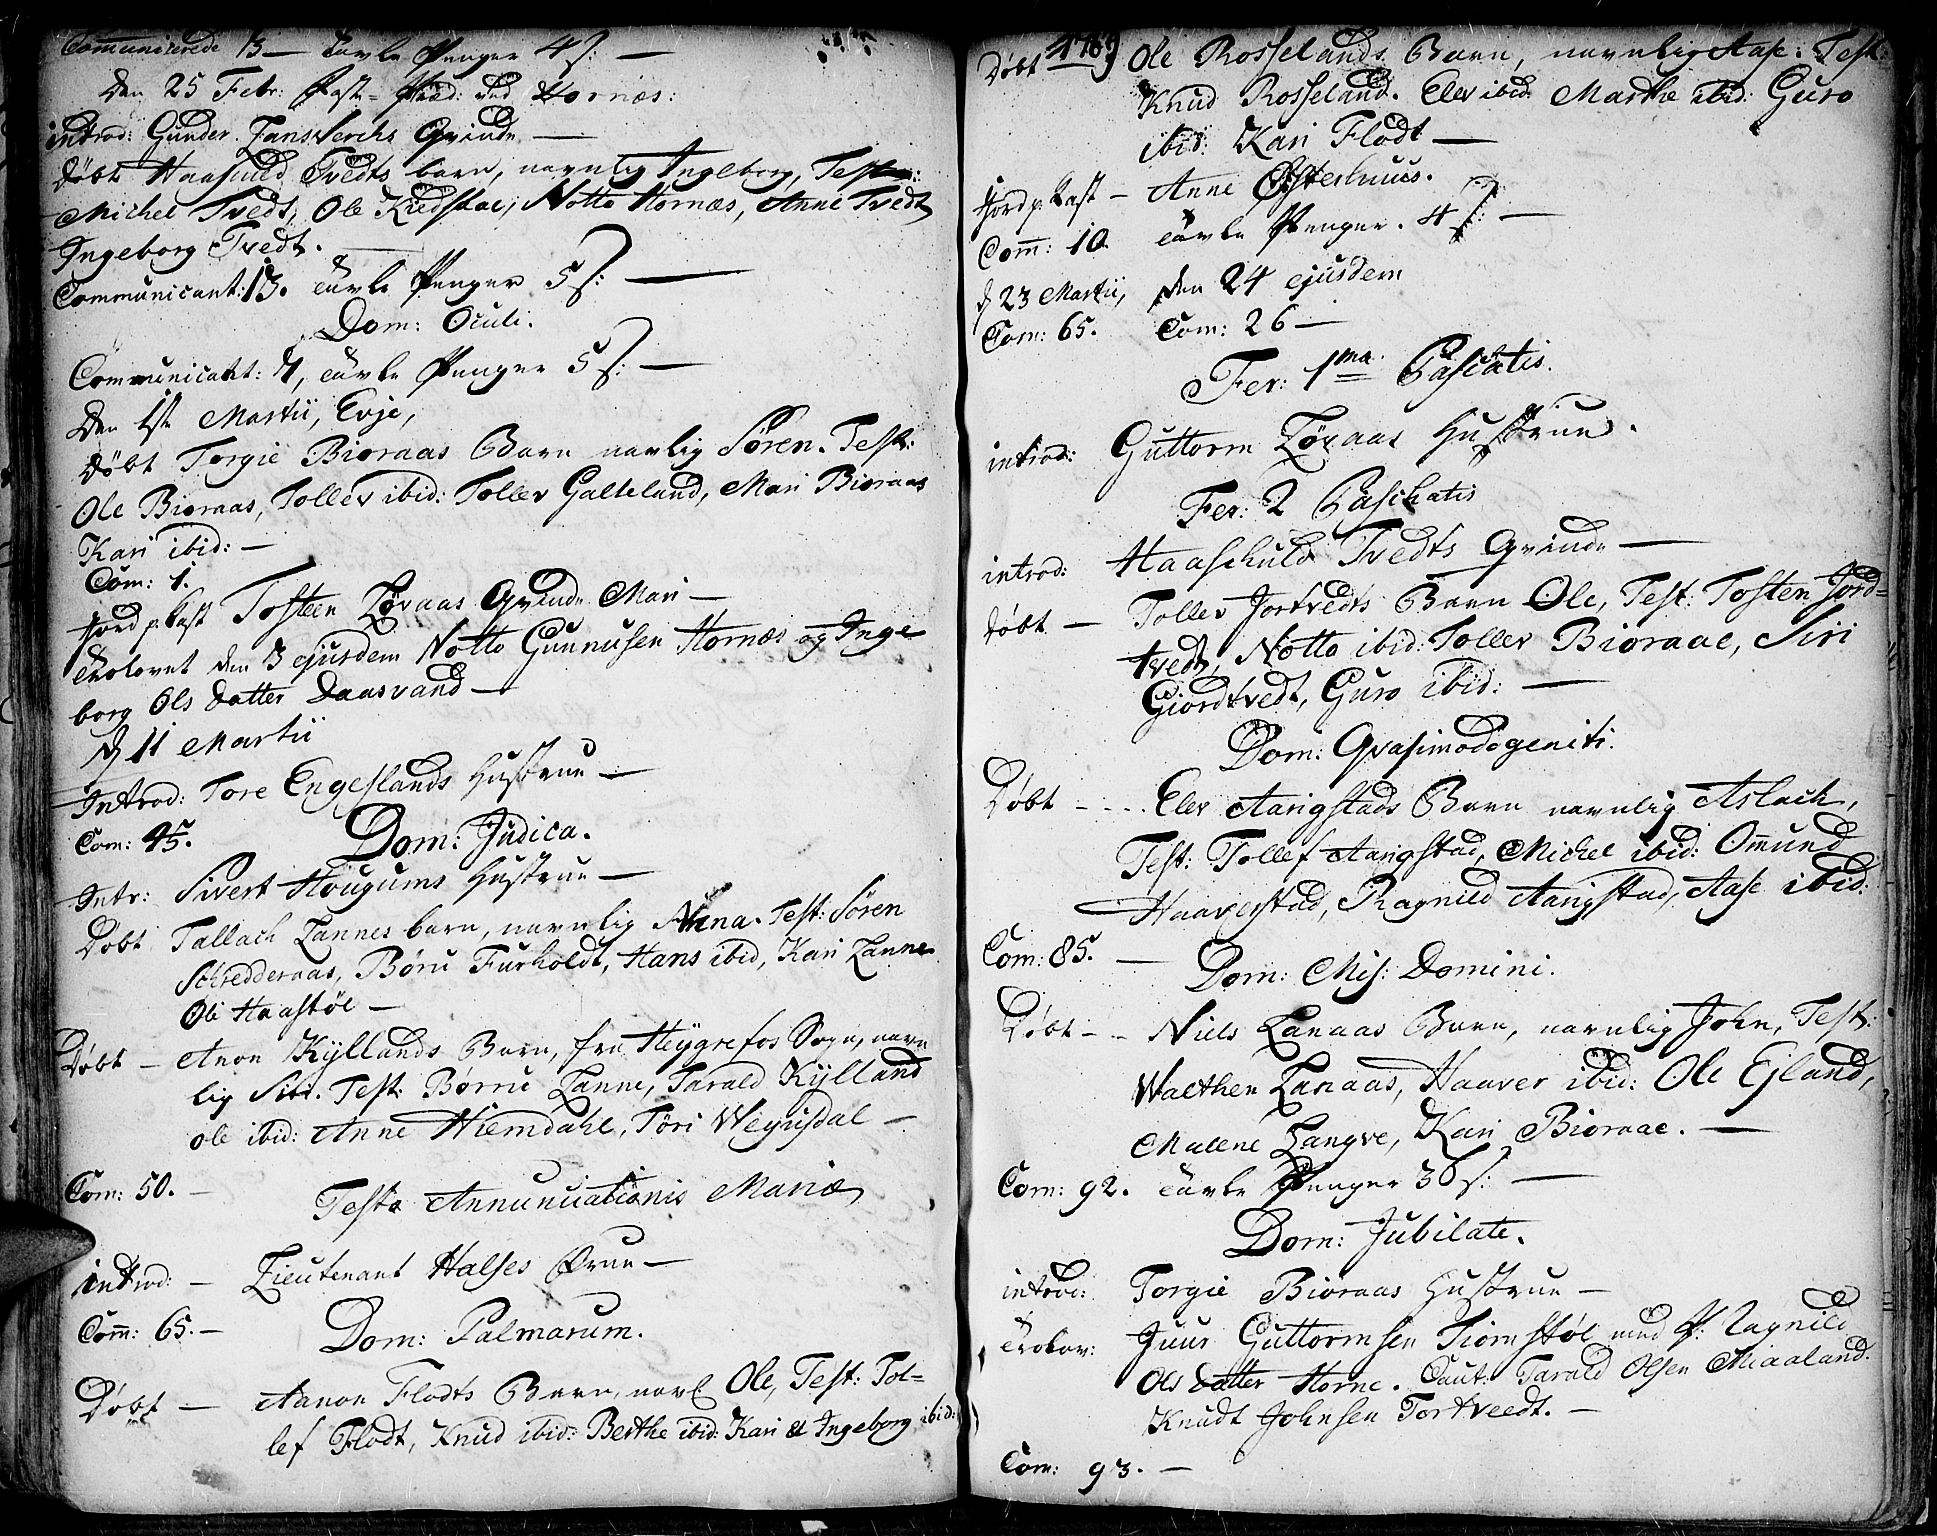 Communicerede 13 — Tavle Penger 4 s: —
Den 25 Febr: Fast-Præd: ved Hornæs:
introd: Gunder Landsverchs Qvinde —
Døbt Haaschuld Tvedts barn, navnlig Ingeborg, Test:
Michel Tvedt, Ole Kiedstae, Notto Hornæs, Anne Tvedt
Ingeborg Tvedt. —
Communicant: 13. Tavle Penger 5 s: —
Dom: Oculi.
Communicant: 7, Tavle Penger 5 s: —
Den 1ste Martii, Evje,
Døbt Torgie Bioraas Barn navnlig Søren. Test:
Ole Bioraas, Tollev ibid: Tollev Galteland, Mari Bioraas
Kari ibid: —
Com: 1.
Jord p. Kast Tosteen Løvaas Qvinde Mari —
Trolovet den 3 ejusdem Notto Gunnusen Hornæs og Inge
borg Ols datter Daasvand —
d 11 Martii
Introd: Tore Engeslands Hustrue —
Com: 45. Dom: Judica.
Intr: Sivert Hougums Hustrue —
Døbt Tallach Lannes barn, navnlig Anna. Test: Søren
Schredderaas, Børu Furholdt, Hans ibid, Kari Lanne
Ole Haastøl —
Døbt — Anon Kyllands Barn, fra Heygrefos Sogn, navn
lig Siri. Test: Børru Lanne, Tarald Kylland
ole ibid: Anne Hiemdahl, Tori Weyusdal —
Com: 50. —
Festo Annunciationis Mariæ
introd: — Lieutenant Halses Frue —
Com: 65. — Dom: Palmarum.
Døbt — Aanon Flodts Barn, navnl Ole, Test: Tol-
lef Flodt, Knud ibid: Berthe ibid: Kari & Ingeborg ibid:
1769
Døbt Ole Rosselands Barn, navnlig Aase: Test:
Knud Rosseland. Elev ibid: Marthe ibid: Guro
ibid: Kari Flodt —
Jord p. Kast — Anne Østerhuus.
Com: 10. Tavle Penger. 4 s: —
d 23 Martii, den 24 ejusdem
Com: 65. Com: 26 —
Fer: 1ma Paschatis.
introd: Guttorm Løvaas Hustrue.
Fer: 2 Paschatis
introd: Haaschuld Tvedts Qvinde —
Døbt — Tollev Jortvedts Barn Ole, Test: Tosten Jord-
tvedt, Notto ibid: Tollev Bioraae, Siri
Giordtvedt, Guro ibid: —
Dom: Qvasimodogeniti.
Døbt — Elev Aarigstads Barn navnlig Aslach,
Test: Tollef Aarigstad, Michel ibid: Omund
Haaverstad, Ragnild Aarigstad, Aase ibid:
Com: 85. — Dom: Mis: Domini.
Døbt — Niels Lanaas Barn, navnlig John, Test:
Walthen Lanaas, Haaver ibid: Ole Ejland,
Malene Langve, Kari Bioraae. —
Com: 92. Tavle Penger 36 s: —
Dom: Jubilate.
introd: Torgie Bioraas Hustrue —
Trolov: Juur Guttormsen Tiomstøl med P: Ragnild
Ols datter Horne. Caut: Tarald Olsen Miaaland.
Knudt Johnsen Tortveedt. —
Com: 93. —